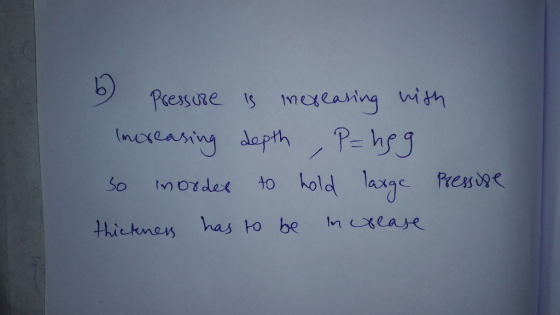 b) Pressure is increasing with
increasing depth, P = hρg
so inorder to hold large pressure
thickness has to be increase